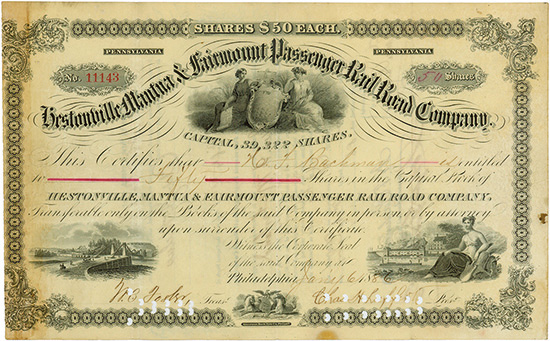 SHARES $50 EACH.
PENNSYLVANIA PENNSYLVANIA
No. 11143 50 Shares
Hestonville, Mantua & Fairmount Passenger Rail Road Company.
CAPITAL, 39,322 SHARES.
This Certifies that is entitled
to Fifty Shares in the Capital Stock of
HESTONVILLE, MANTUA & FAIRMOUNT PASSENGER RAIL ROAD COMPANY,
Transferable only on the Books of the said Company in person, or by attorney
upon surrender of this Certificate
Witness the Corporate Seal
of the said Company at
Philadelphia 6 188
Treas. Prest.